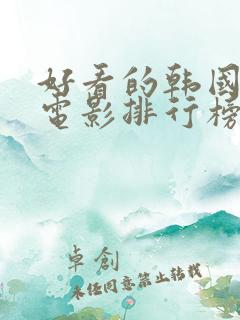 好看的韩国
电影排行榜
卓创
未经同意禁止转载